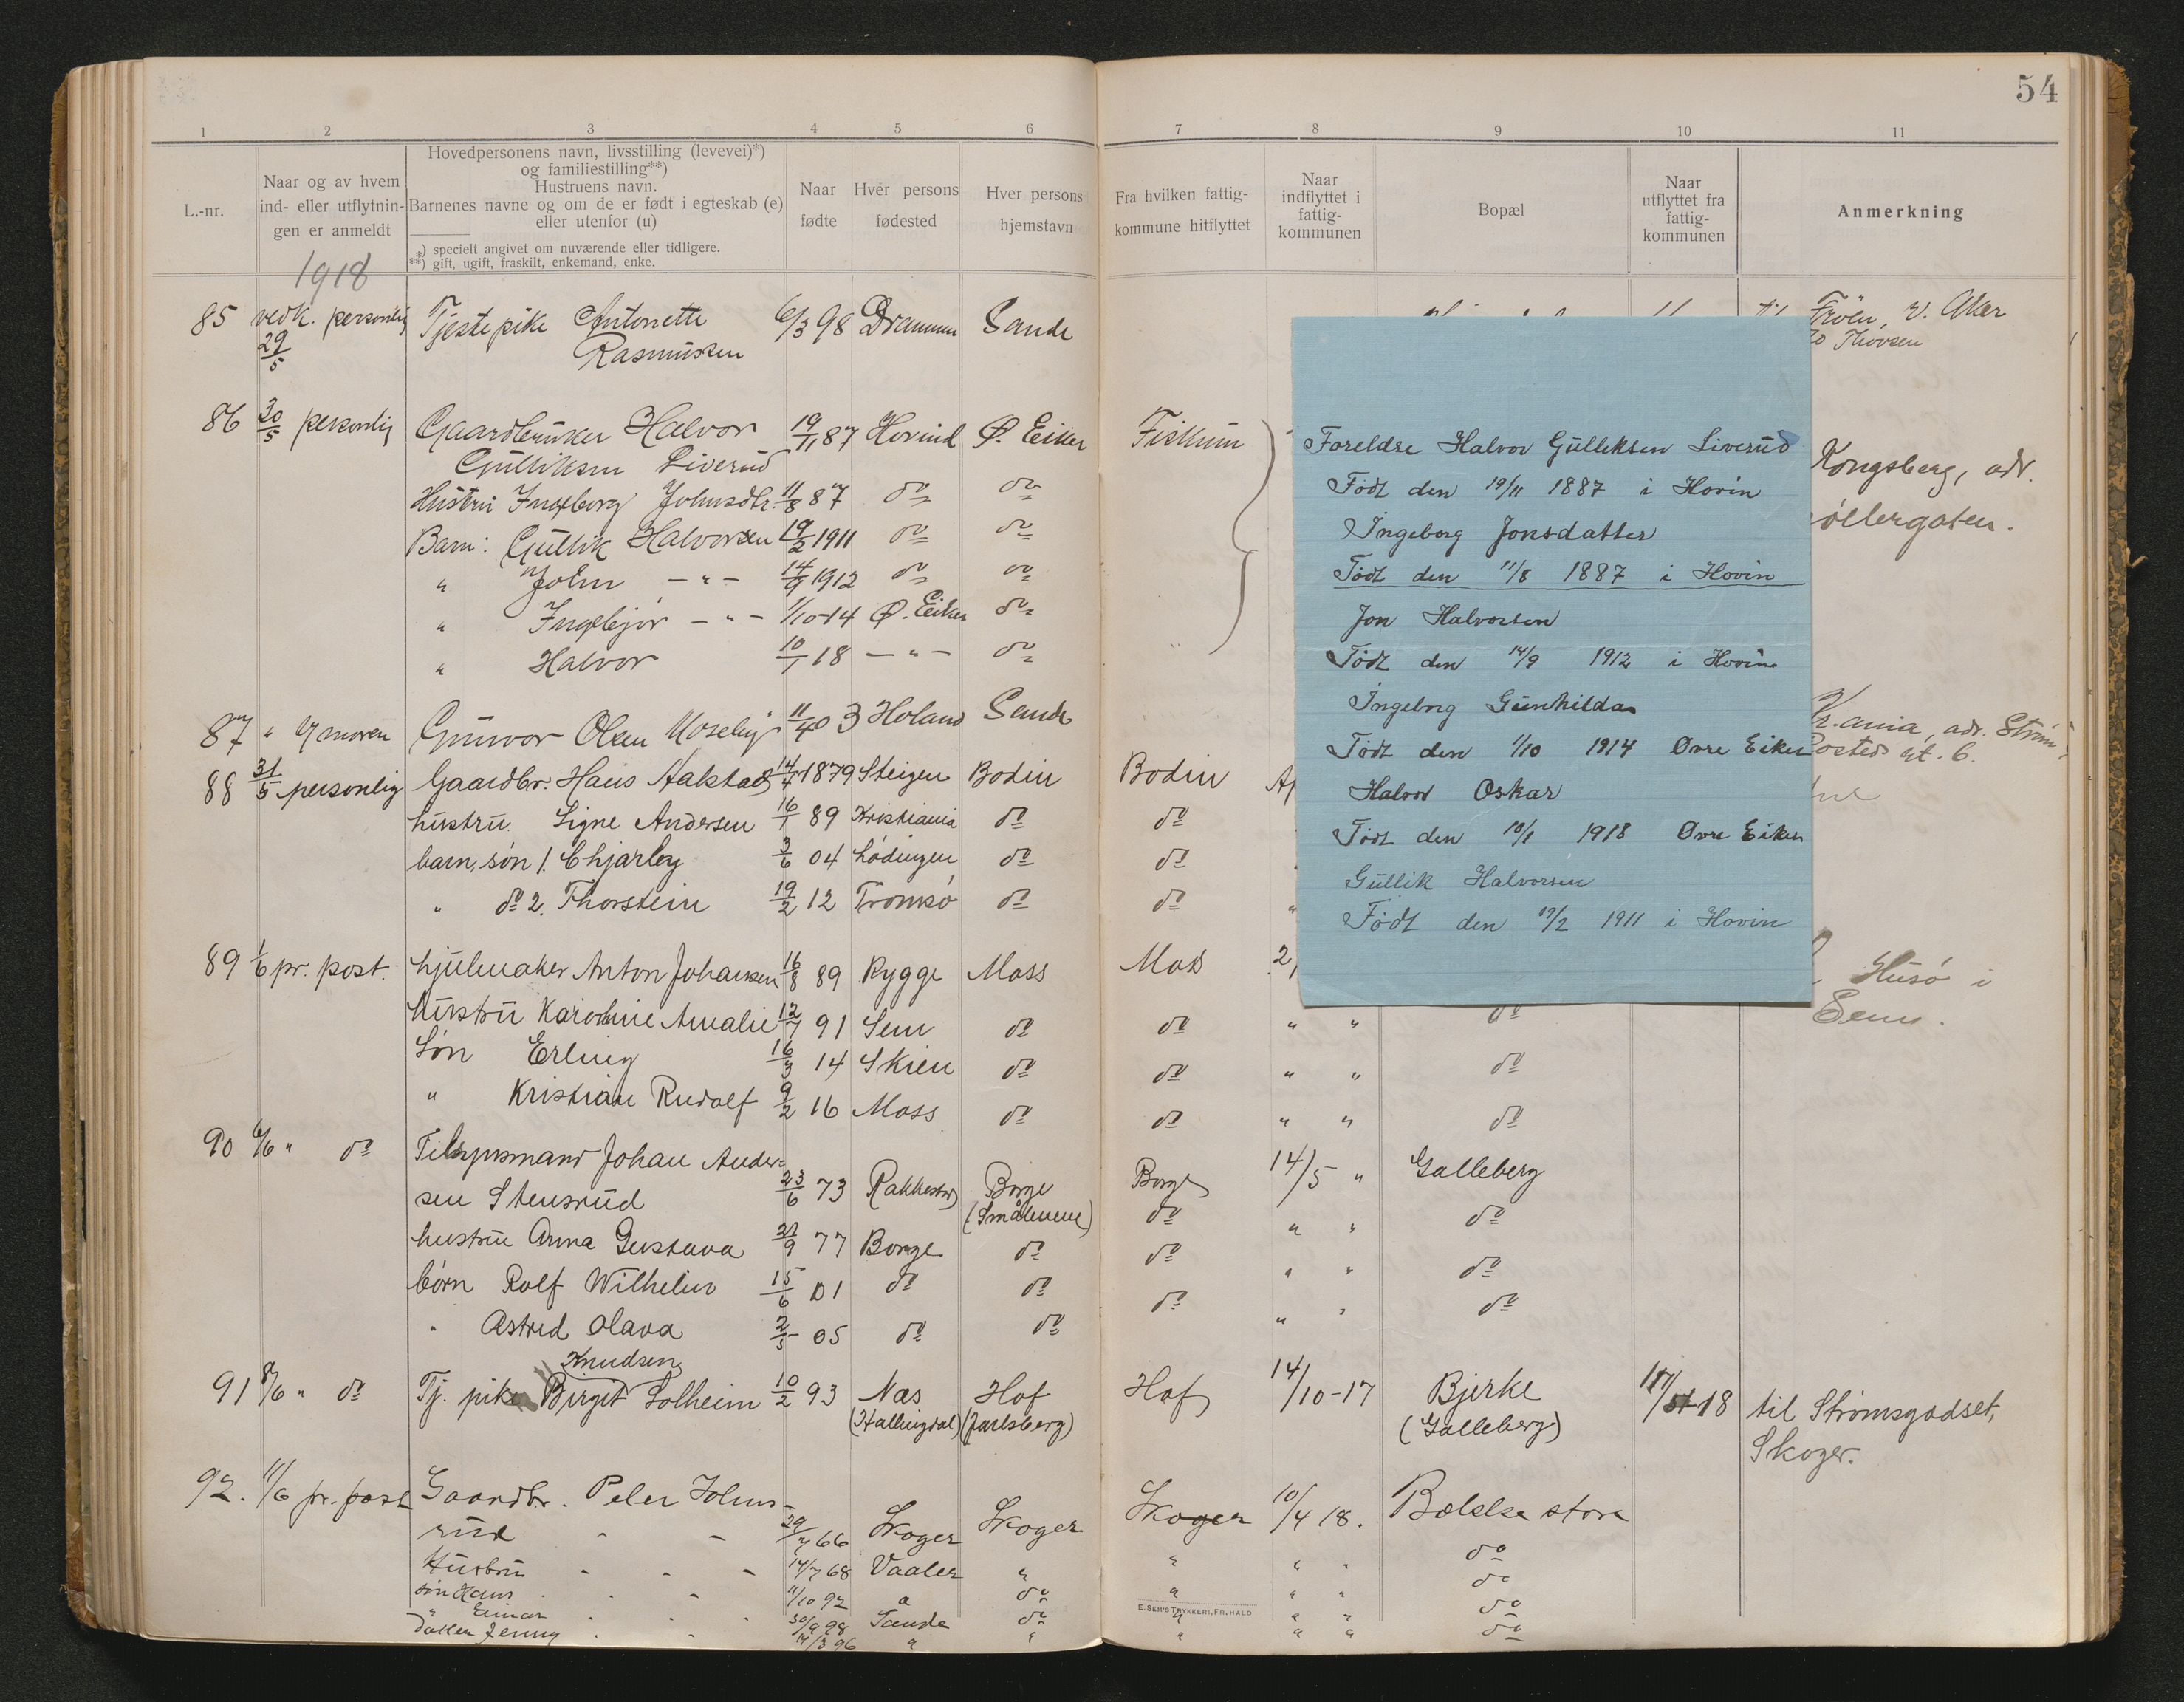 54
1 2 3 4 5 6 7 8 9 10 11
L.-nr.
Naar og av hvem
ind- eller utflytnin-
gen er anmeldt
Hovedpersonens navn, livsstilling (levevei)*)
og familiestilling**)
Hustruens navn.
Barnenes navne og om de er født i egteskab (e)
eller utenfor (u)
*) specielt angivet om nuværende eller tidligere.
**) gift, ugift, fraskilt, enkemand, enke.
Naar
fødte
Hver persons
fødested
Hver persons
hjemstavn
Fra hvilken fattig-
kommune hitflyttet
Naar
indflyttet i
fattig-
kommunen
Bopæl
Naar
utflyttet fra
fattig-
kommunen
Anmerkning
1918
85 vedk. personlig Tjestepike Antonette 6/3 98 Drammen Sande Frøen, v. Aker
29/5 Rasmussen Thorsen
86 30/5 personlig Gaardbruker Halvor 19/11 87 Hovind Ø. Eiker Fiskum Kongsberg, adr.
Gulliksen Liverud
Hustru Ingeborg Johnsdtr. 11/8 87 do do øllergaten.
Barn: Gullik Halvorsen 19/2 1911 do do
" John - " - 14/9 1912 do do
" Ingebjør - " - 1/10-14 Ø. Eiker do
" Halvor 10/1 18 - " - do
87 " af moren Gunvor Olsen Moseby 11/4 03 Holand Sande Kr.ania, adr. Strøm
gt. 6.
88 31/5 personlig Gaardbr. Hans Aakstad 14/4 1879 Steigen Bodin Bodin
hustru. Signe Andersen 16/1 89 Kristiania do do
barn, søn 1. Ehjarley 3/6 04 Lødingen do do
" do 2. Thorstein 19/2 12 Tromsø do do
89 1/6 pr. post. hjulmaker Anton Johansen 16/8 89 Rygge Moss Moss 2 Husø i
hustru Karoline Amalie 12/7 91 Sem do do " " do Sem.
Søn Erling 16/3 14 Skien do do " " do
" Kristian Rudolf 9/2 16 Moss do do " " do
90 6/6 " do Tilsynsmand Johan Ander=
sen Stensrud 23/6 73 Rakkestad Borge Borge 14/5 " Galleberg
(Smålenene) do " " do
hustru Anna Gustava 9 77 Borge do do " " do
børn Rolf Wilhelm 15/6 01 do do do " " do
" Astrid Olava 2/5 05 do do
Knudsen
91 8/6 " do Tj. pike Birgit Solheim 10/2 93 Nas Hof Hof 14/10-17 Bjerke 18 til Strømsgodset,
(Hallingdal) (Jarlsberg) (Galleberg) Skoger.
92. 11/6 pr. post Gaardbr. Peter Johns-
rud 29/ 66 Skoger Skoger Skoger 10/4 18. Bølske store
Hustru - - - 14/7 68 Vaaler " " " " do
søn Hans 11/10 92 " do " " " do
" Einar 30/9 98 Sande do " " " do
datter Jenny 14/3 96 " " " " " do
E. SEM'S TRYKKERI, FR.HALD
Foreldre Halvor Gulleksen Liverud
Födt den 19/11 1887 i Hovin
Ingeborg Jonsdatter
Födt den 11/8 1887 i Hovin
Jon Halvorsen
Födt den 14/9 1912 i Hovin
Ingeborg Gunhilda
Födt den 1/10 1914 Øvre Eiker
Halvor Oskar
Födt den 10/1 1918 Øvre Eiker
Gullik Halvorsen
Födt den 19/2 1911 i Hovin